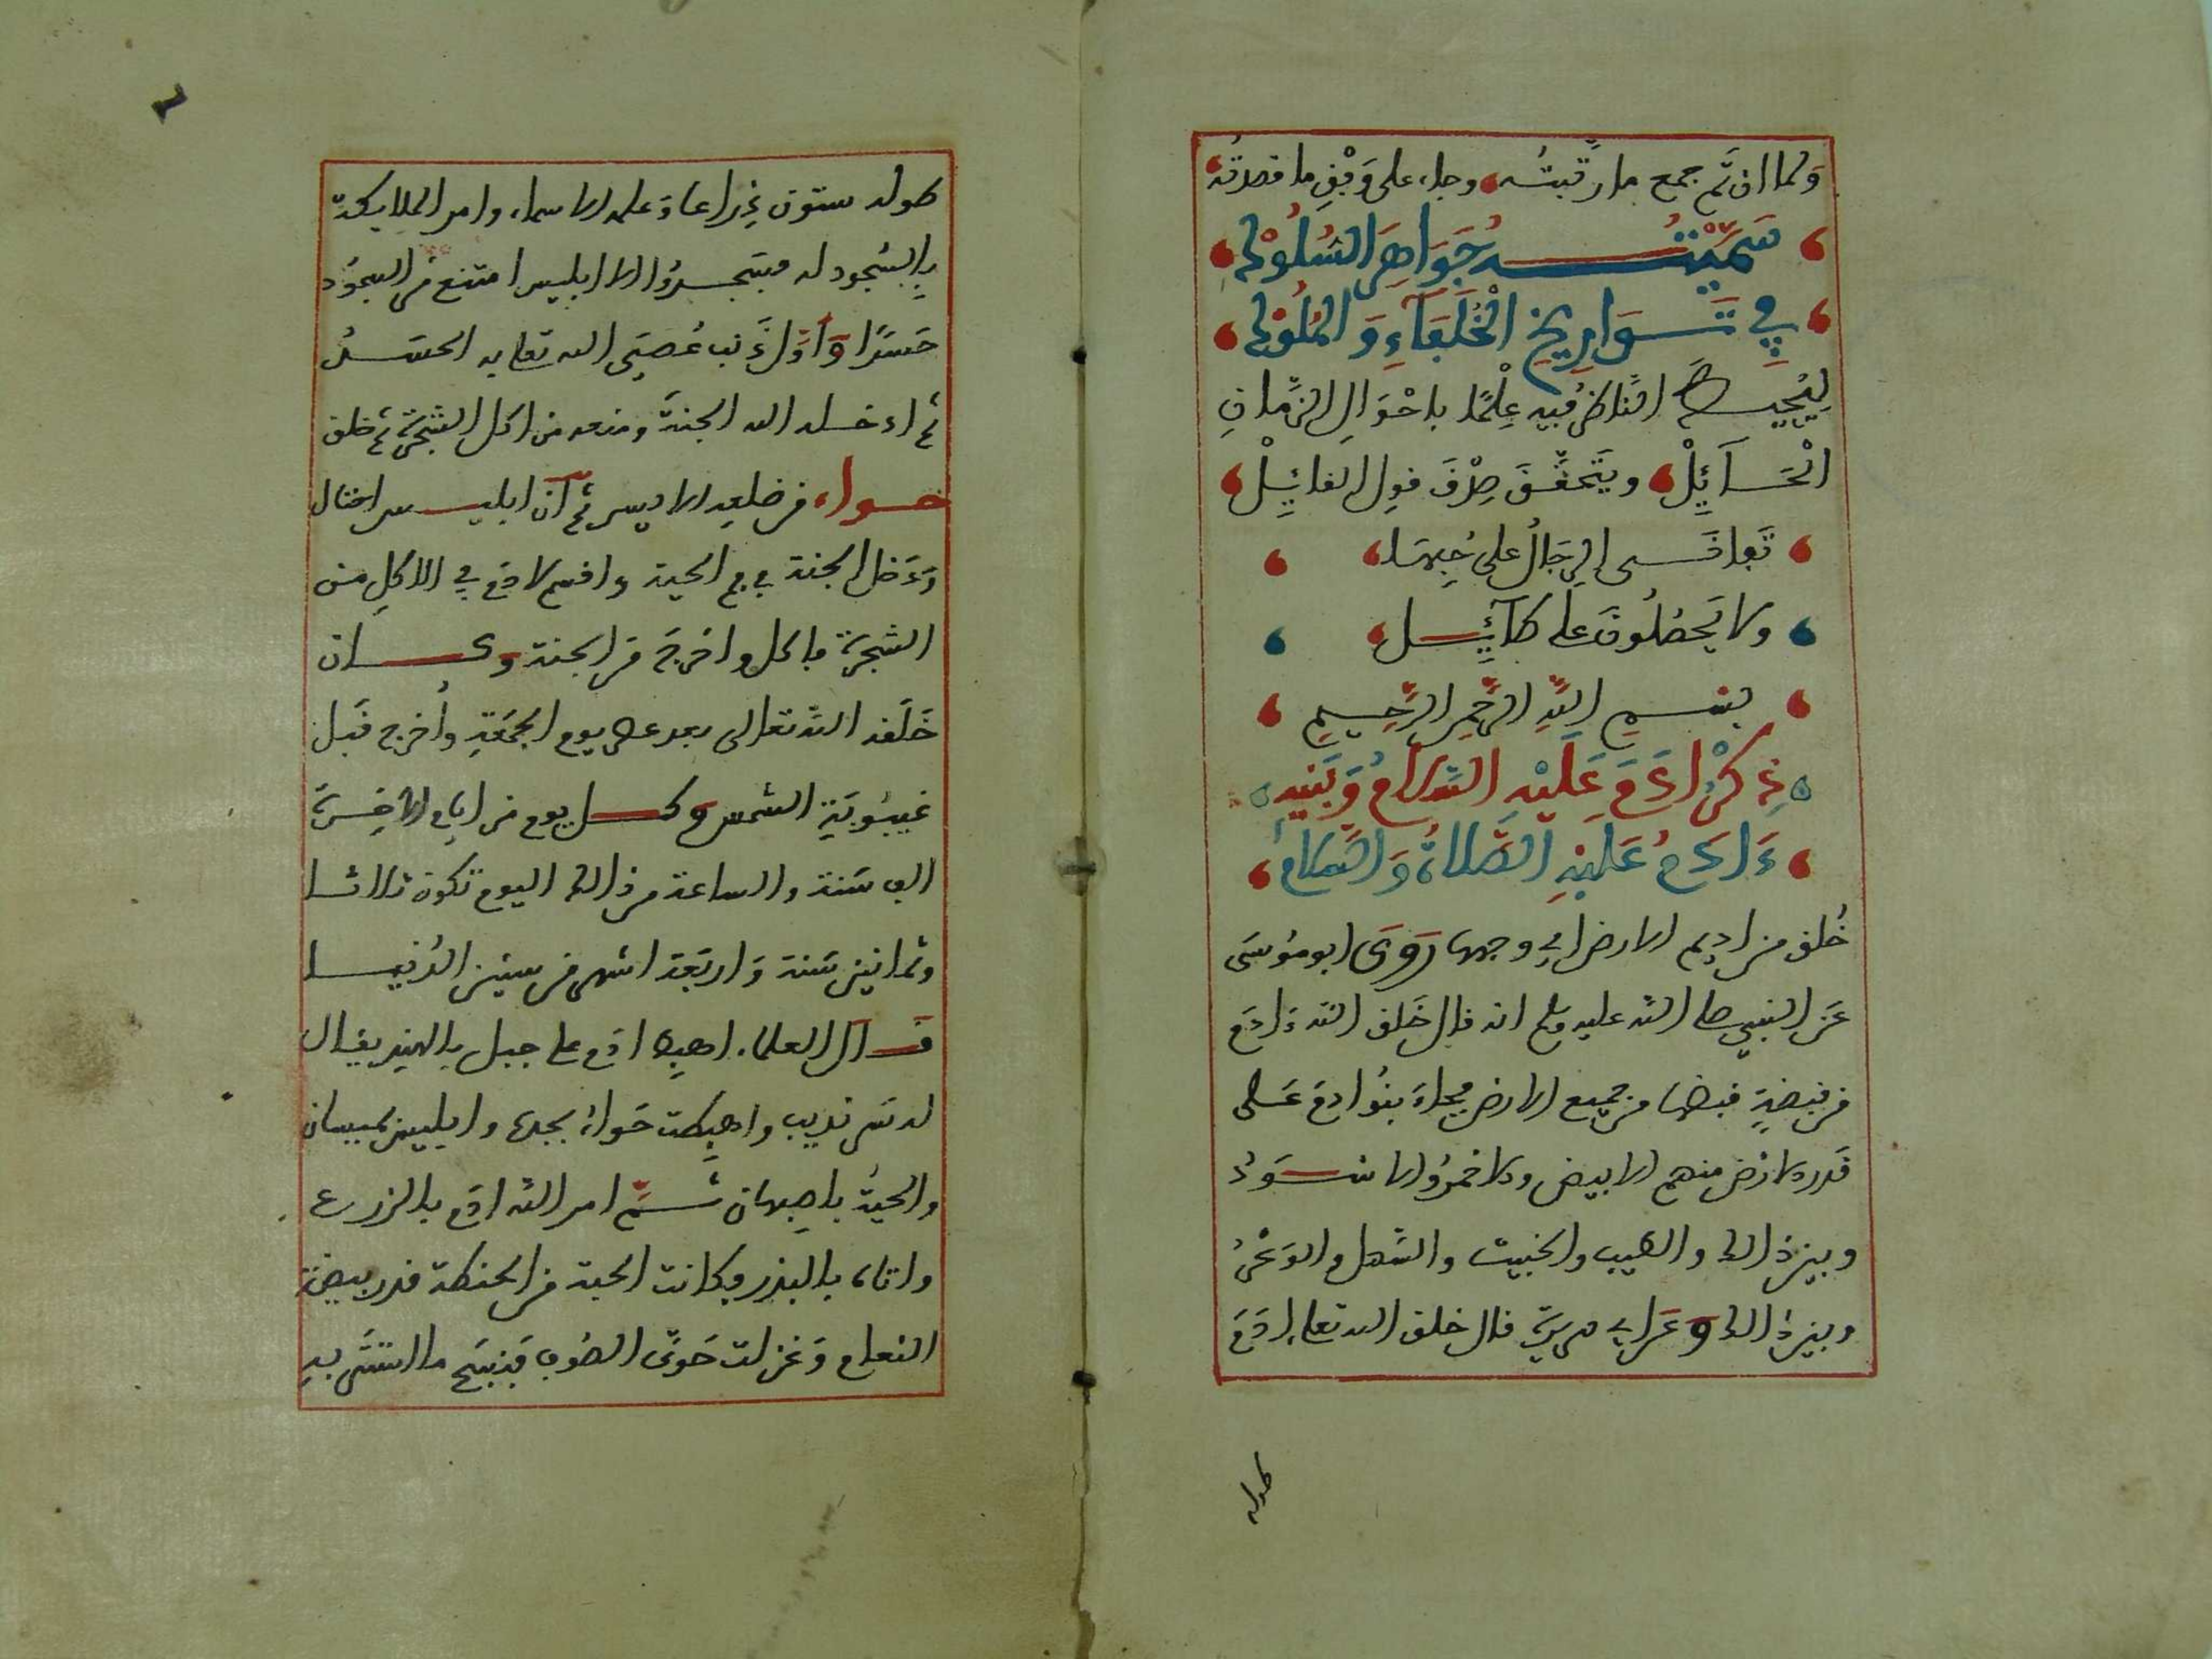 ولما ان تم جمع ما رتبته وجاء على وفق ما قصدته
سميته جواهر السلوك
في تواريخ الخلفاء والملوك
ليحيط الناظر فيه علما باحوال الزمان
الحائل ويتحقق صدق قول القائل
تفانى الرجال على حبها
ولا يحصلون على طائل
بسم الله الرحمن الرحيم
ذكر ءادم عليه السلام وبنيه
ءادم عليه الصلاة والسلام
خلق من اديم الارض اي وجهها روى ابو موسى
عن النبي صلى الله عليه وسلم انه قال خلق الله ءادم
من قبضة قبضها من جميع الارض فجاء بنو ادم على
قدر الارض منهم الابيض والاحمر والاسود
وبين ذلك والطيب والخبيث والسهل والوعر
وبين ذلك وعن ابي هريرة قال خلق الله تعالى ادم
طوله
طوله ستون ذراعا وعلمه الاسماء وامر الملايكة
بالسجود له فسجدوا الا ابليس امتنع من السجود
حسدا واول ذنب عصي الله تعالى به الحسد
ثم ادخله الله الجنة ومنعه من اكل الشجرة ثم خلق
حواء من ضلعه الايسر ثم ان ابليس احتال
ودخل الجنة في فم الحية واقسم لادم في الاكل من
الشجرة فاكل واخرج من الجنة وكان
خلقه الله تعالى بعد عصر يوم الجمعة وأخرج قبل
غيبوبة الشمس وكل يوم من ايام الاخرة
الف سنة والساعة من ذلك اليوم تكون ثلاثا
وثمانين سنة واربعة اشهر من سنين الدنيا
قال العلماء اهبط ادم على جبل بالهند يقال
له سرنديب واهبطت حواء بجدة وابليس بميسان
والحية باصبهان ثم امر الله ادم بالزرع
واتاه بالبذر وكانت الحبة من الحنطة قدر بيضة
النعام وغزلت حوى الصوف فنسج ما استتر به